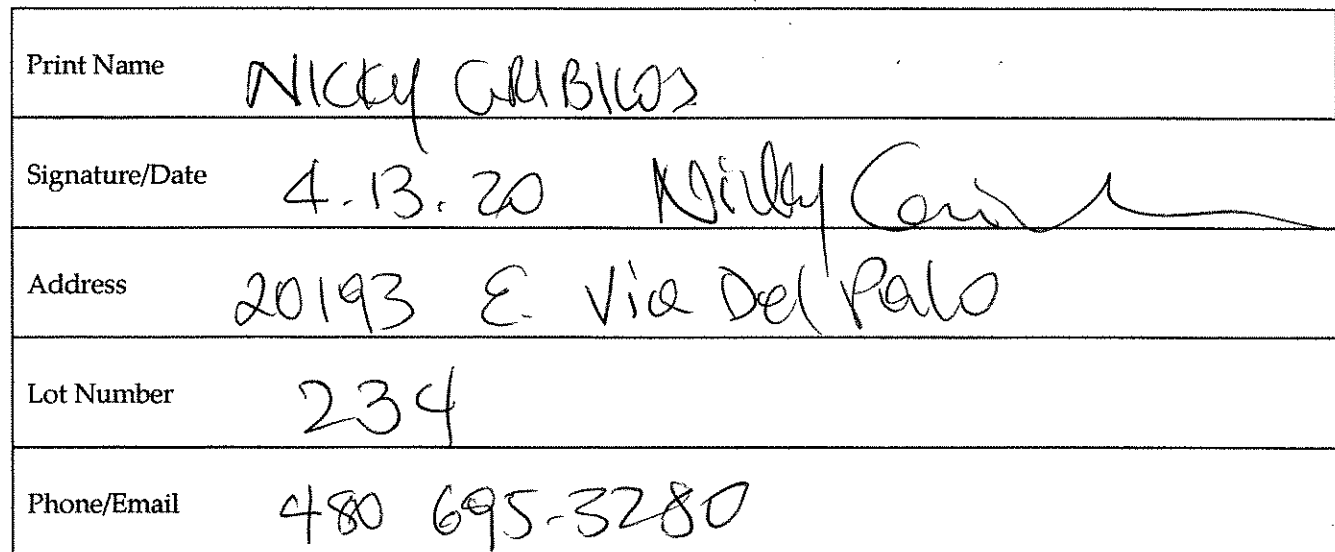 Print Name NICKY
Signature/Date 4.13.20 Nicky
Address 20193 E. Via Del Palo
Lot Number 234
Phone/Email 480 695-3280